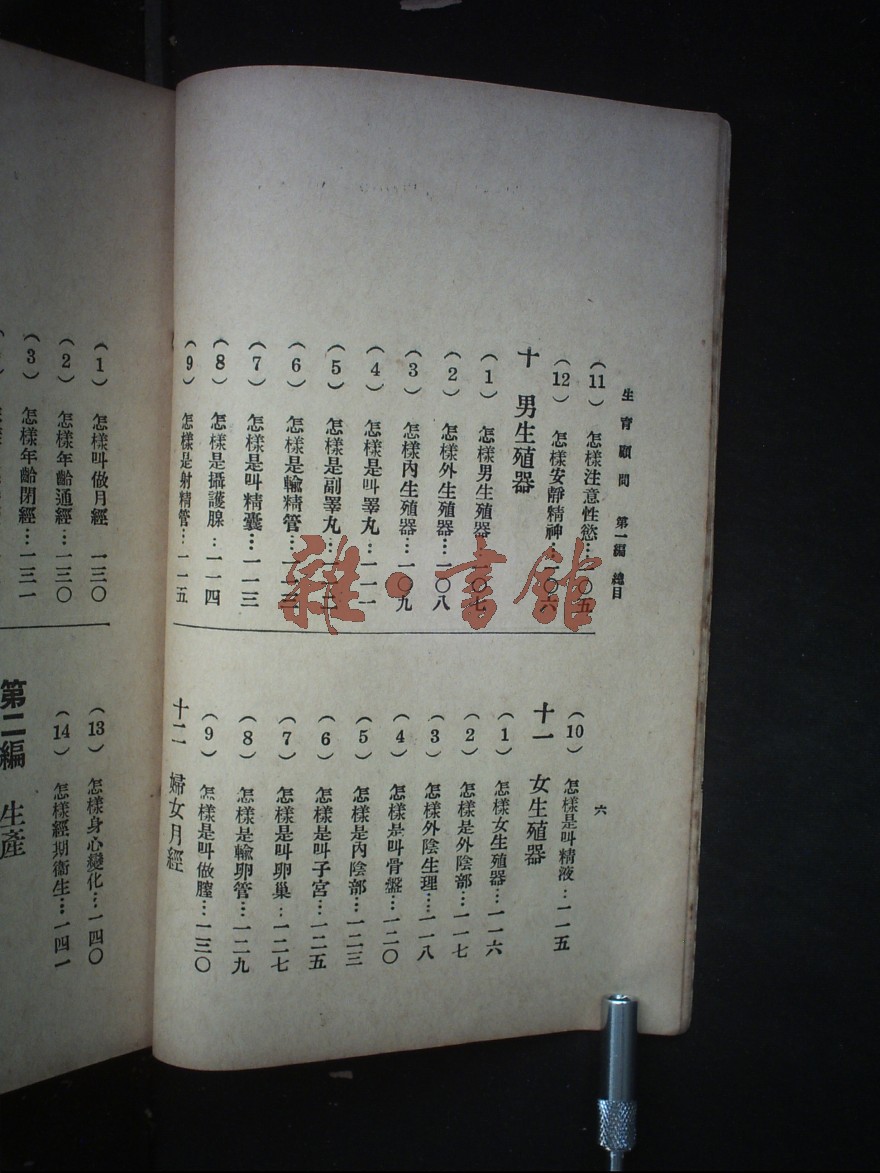 生育顧問 第一編 總目
六
(11) 怎樣注意性慾…一〇五
(12) 怎樣安靜精神…一〇六
十 男生殖器
(1) 怎樣男生殖器…一〇七
(2) 怎樣外生殖器…一〇八
(3) 怎樣內生殖器…一〇九
(4) 怎樣是叫睪丸…一一一
(5) 怎樣是副睪丸…一一二
(6) 怎樣是輸精管…一一三
(7) 怎樣是叫精囊…一一三
(8) 怎樣是攝護腺…一一四
(9) 怎樣是射精管…一一五
(10) 怎樣是叫精液…一一五
十一 女生殖器
(1) 怎樣女生殖器…一一六
(2) 怎樣是外陰部…一一七
(3) 怎樣外陰生理…一一八
(4) 怎樣是叫骨盤…一二〇
(5) 怎樣是內陰部…一二三
(6) 怎樣是叫子宮…一二五
(7) 怎樣是叫卵巢…一二七
(8) 怎樣是輸卵管…一二九
(9) 怎樣是叫做膣…一三〇
十二 婦女月經
(1) 怎樣叫做月經 一三〇
(2) 怎樣年齡通經…一三〇
(3) 怎樣年齡閉經…一三一
(13) 怎樣身心變化…一四〇
(14) 怎樣經期衞生…一四一
第二編 生產
雜·書館